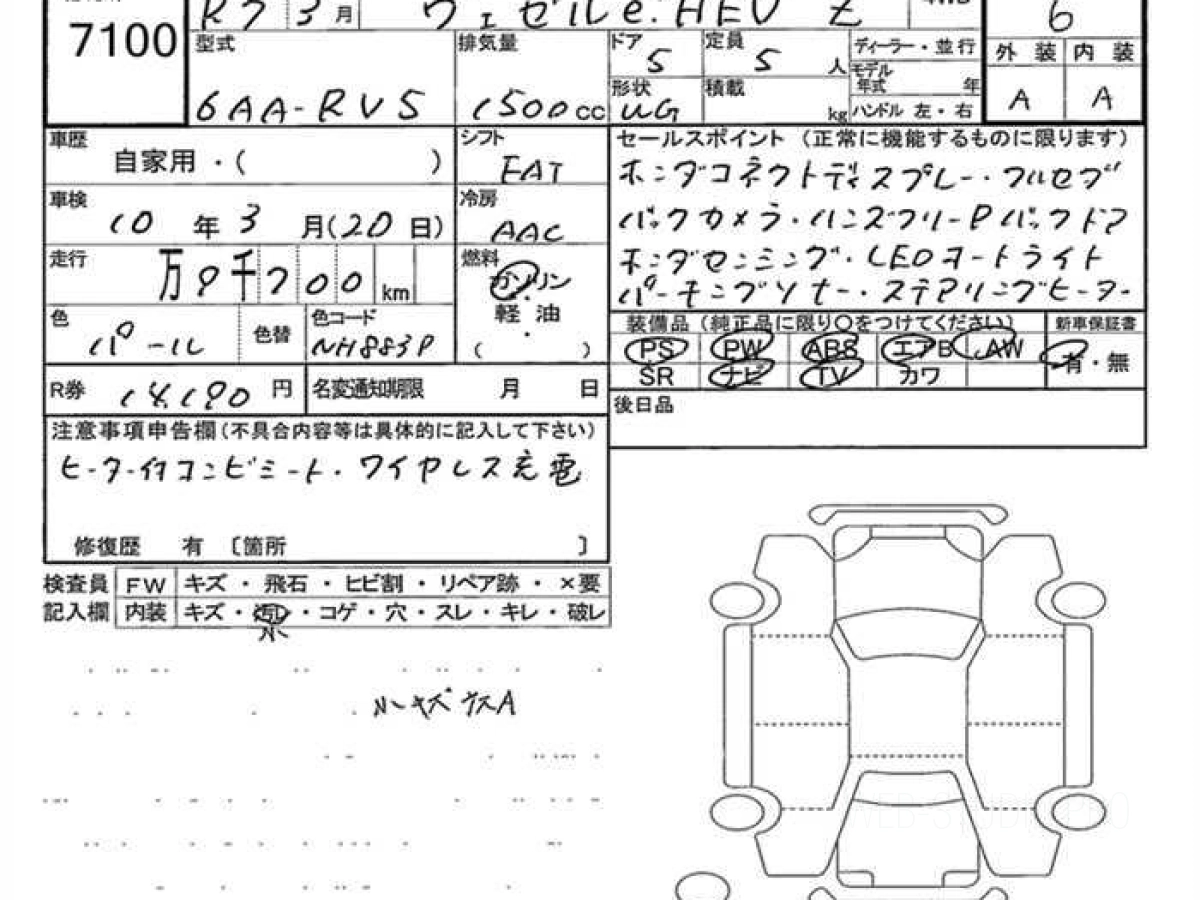 7100
R7 3月 ヴェゼル e:HEV Z
6
型式 6AA-RV5
排気量 1500cc
ドア 5
定員 5人
ディーラー・並行
モデル年式 年
形状 UG
積載 kg
ハンドル 左・右
外装 内装
A A
車歴 自家用・( )
シフト FAT
セールスポイント (正常に機能するものに限ります)
ホンダコネクトディスプレー・フルセグ
バックカメラ・ハンズフリーPバックドア
ホンダセンシング・LEDオートライト
パーキングソナー・ステアリングヒーター
車検 10年3月(20日)
冷房 AAC
走行 万9千700km
燃料 ガソリン・軽油・( )
色 パール
色替
色コード NH883P
装備品 (純正品に限り○をつけてください)
新車保証書
PS PW ABS エアB AW
有・無
SR ナビ TV カワ
R券 14,190円
名変通知期限 月 日
後日品
注意事項申告欄(不具合内容等は具体的に記入して下さい)
ヒーター付コンビシート・ワイヤレス充電
修復歴 有 〔箇所 〕
検査員 FW キズ・飛石・ヒビ割・リペア跡・×要
記入欄 内装 キズ・汚レ・コゲ・穴・スレ・キレ・破レ
小
小キズ ウスA